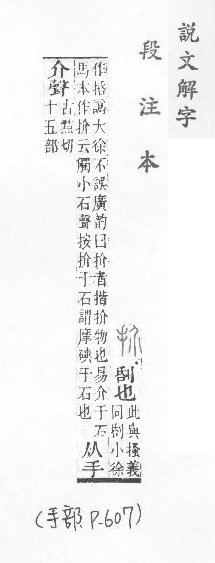 說文解字
段注本
扴 刮也 此與搔義
同刮小徐
作括譌大徐不誤廣韵曰扴者揩扴物也易介于石
馬本作扴云觸小石聲按扴于石謂摩磢于石也 从手
介聲 古黠切
十五部
(手部 P.607)